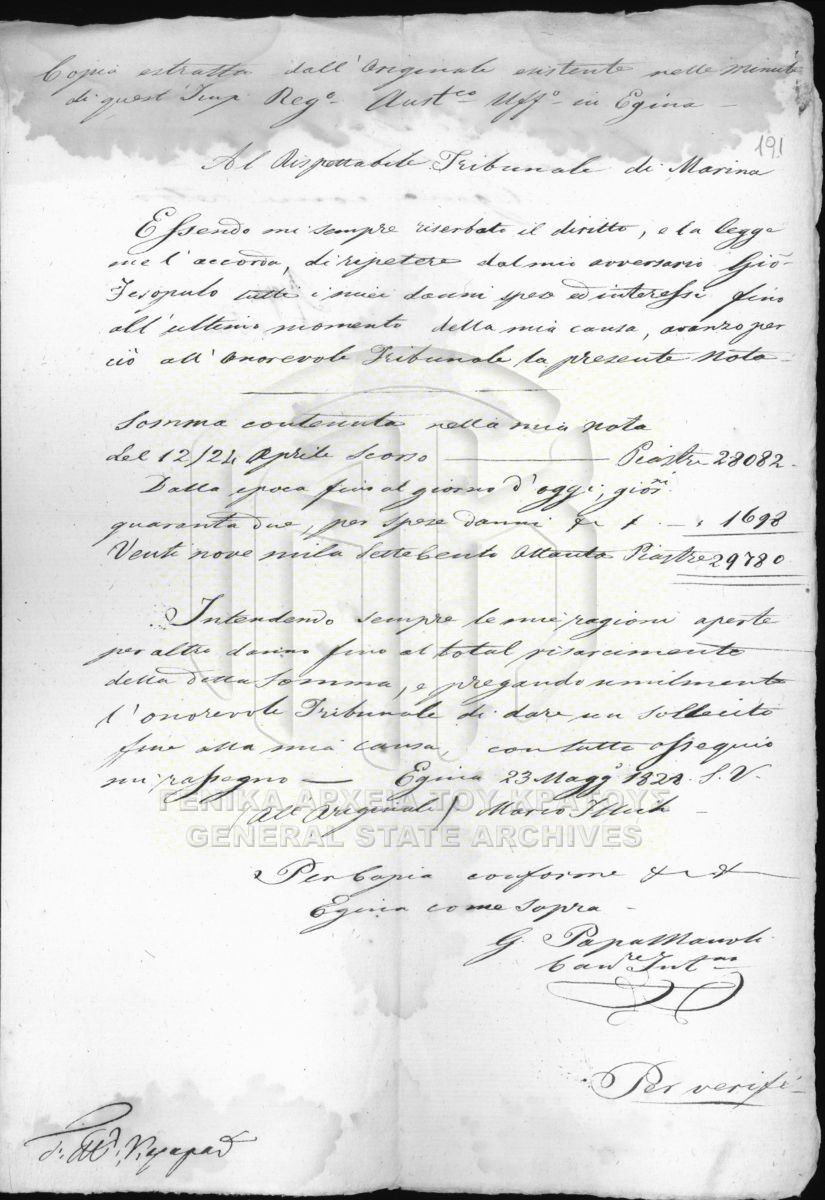 Copia estratta dall'Originale esistente nelle Minute
di quest'Imp. Reg.º Aust.co Uff.º in Egina —
191
Al Rispettabile Tribunale di Marina
Essendomi sempre riserbato il diritto, e la legge
me l'accorda, di ripetere dal mio avversario Giō-
Jeropulo tutti i miei danni spese ed interessi fino
all'ultimo momento della mia causa, avanzo per
ciò all'Onorevole Tribunale la presente Nota —
Somma contenuta nella mia nota
del 12/24 Aprile scorso — Piastre 28082.
Dalla epoca fino al giorno d'oggi, giōr.
quaranta due, per spese danni & & — " 1698
Venti nove mila Sette Cento Ottanta Piastre 29780
Intendendo sempre le mie ragioni aperte
per altro danno fino al total risarcimento
della detta Somma, e pregando umilmente
l'onorevole Tribunale di dare un sollecito
fine alla mia causa, con tutto ossequio
mi rassegno — Egina 23 Magg.º 1828. S. V.
(All'Originale) Marco Illich —
Per Copia conforme & &
Egina come Sopra —
G. Papa Manoli
Can.re Int.no
Per verifi-
ΓΕΝΙΚΑ ΑΡΧΕΙΑ ΤΟΥ ΚΡΑΤΟΥΣ
GENERAL STATE ARCHIVES